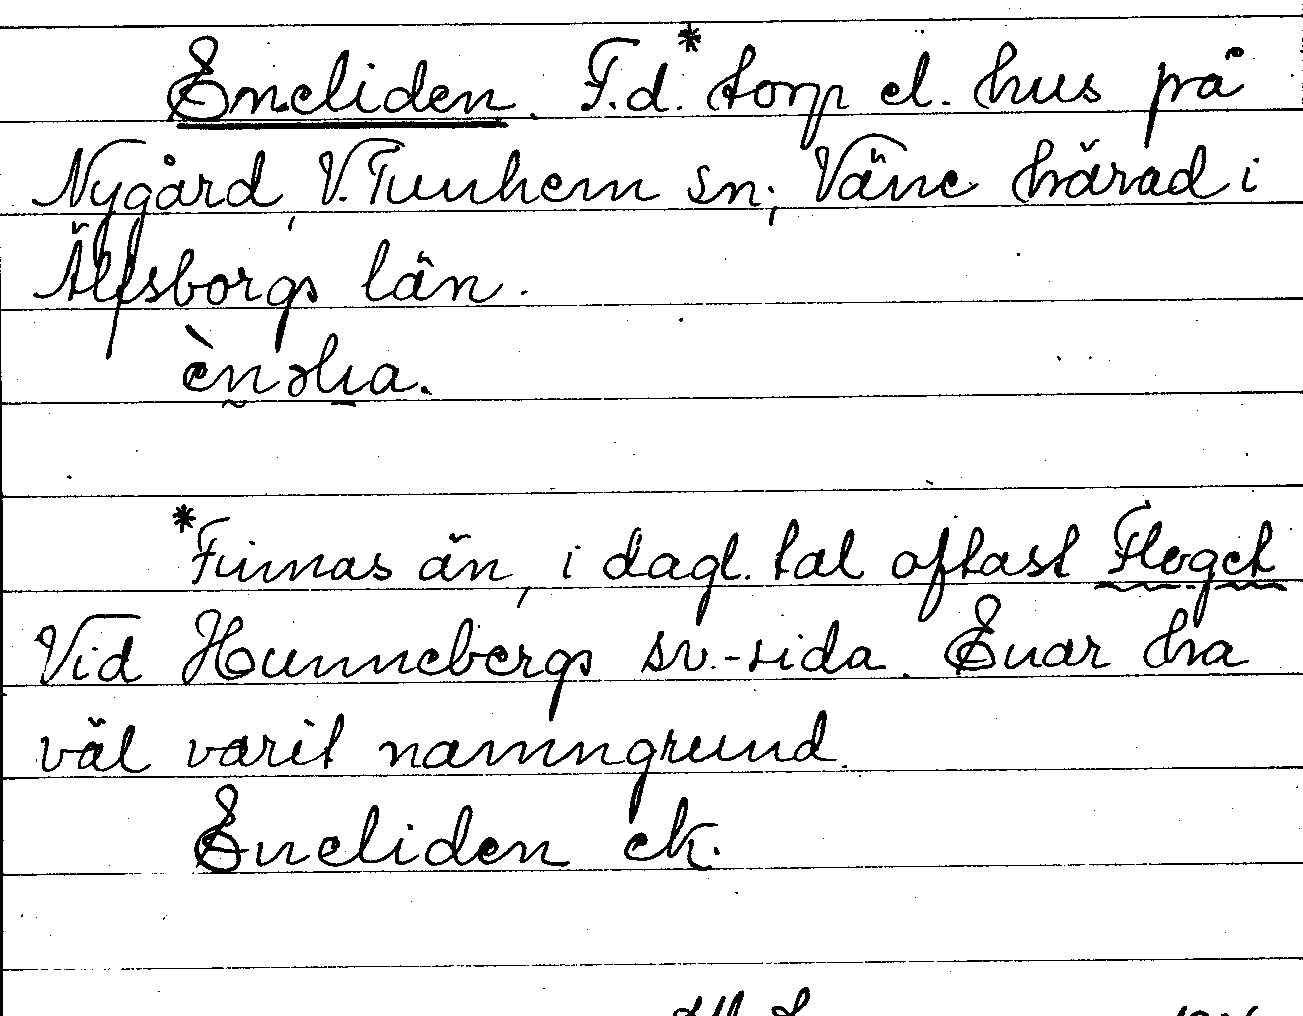 Eneliden. F.d.* torp el. hus på
Nygård, V. Tunhem sn; Väne härad i
Älfsborgs län.
*Finnas än, i dagl. tal oftast Floget
Vid Hunnebergs sv.-sida. Enar ha
väl varit namngrund.
Eneliden ek.